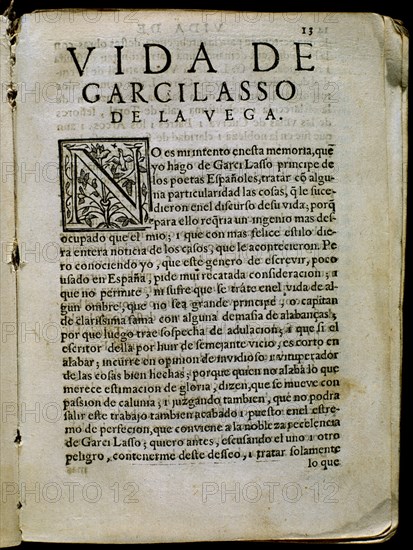 13
VIDA DE
GARCILASSO
DE LA VEGA.
NO es mi intento enesta memoria, quē
yo hago de Garci Lasso principe de
los poetas Españoles, tratar cō algu
na particularidad las cosas, q̃ le suce
dieron enel discurso desu vida; porq̃
para ello reqria un ingenio mas des-
ocupado que el mio; i que con mas felice estilo diera
entera noticia de los casos, que le acontecieron. Pe
ro conociendo yo, que este genero de escrevir, poco
usado en España, pide mui recatada consideracion; i
que no permite, ni sufre que se trate enel vida de al-
gun ombre, que no sea grande principe, o capitan
de clarissima fama con alguna demasia de alabanças;
por que luego trae sospecha de adulacion; i que si el
escritor della por huir de semejante vicio, es corto en
alabar; incurre en opinion de invidioso i vituperador
de las cosas bien hechas; porque quien no alaba lo que
merece estimacion de gloria, dizen, que se mueve con
passion de calunia; i juzgando tambien, que no podra
salir este trabajo tambien acabado i puesto enel estre-
mo de perfecion, que conviene a la nobleza i ecelencia
de Garci Lasso; quiero antes, escusando el uno i otro
peligro, contenerme deste desseo, i tratar solamente
lo que